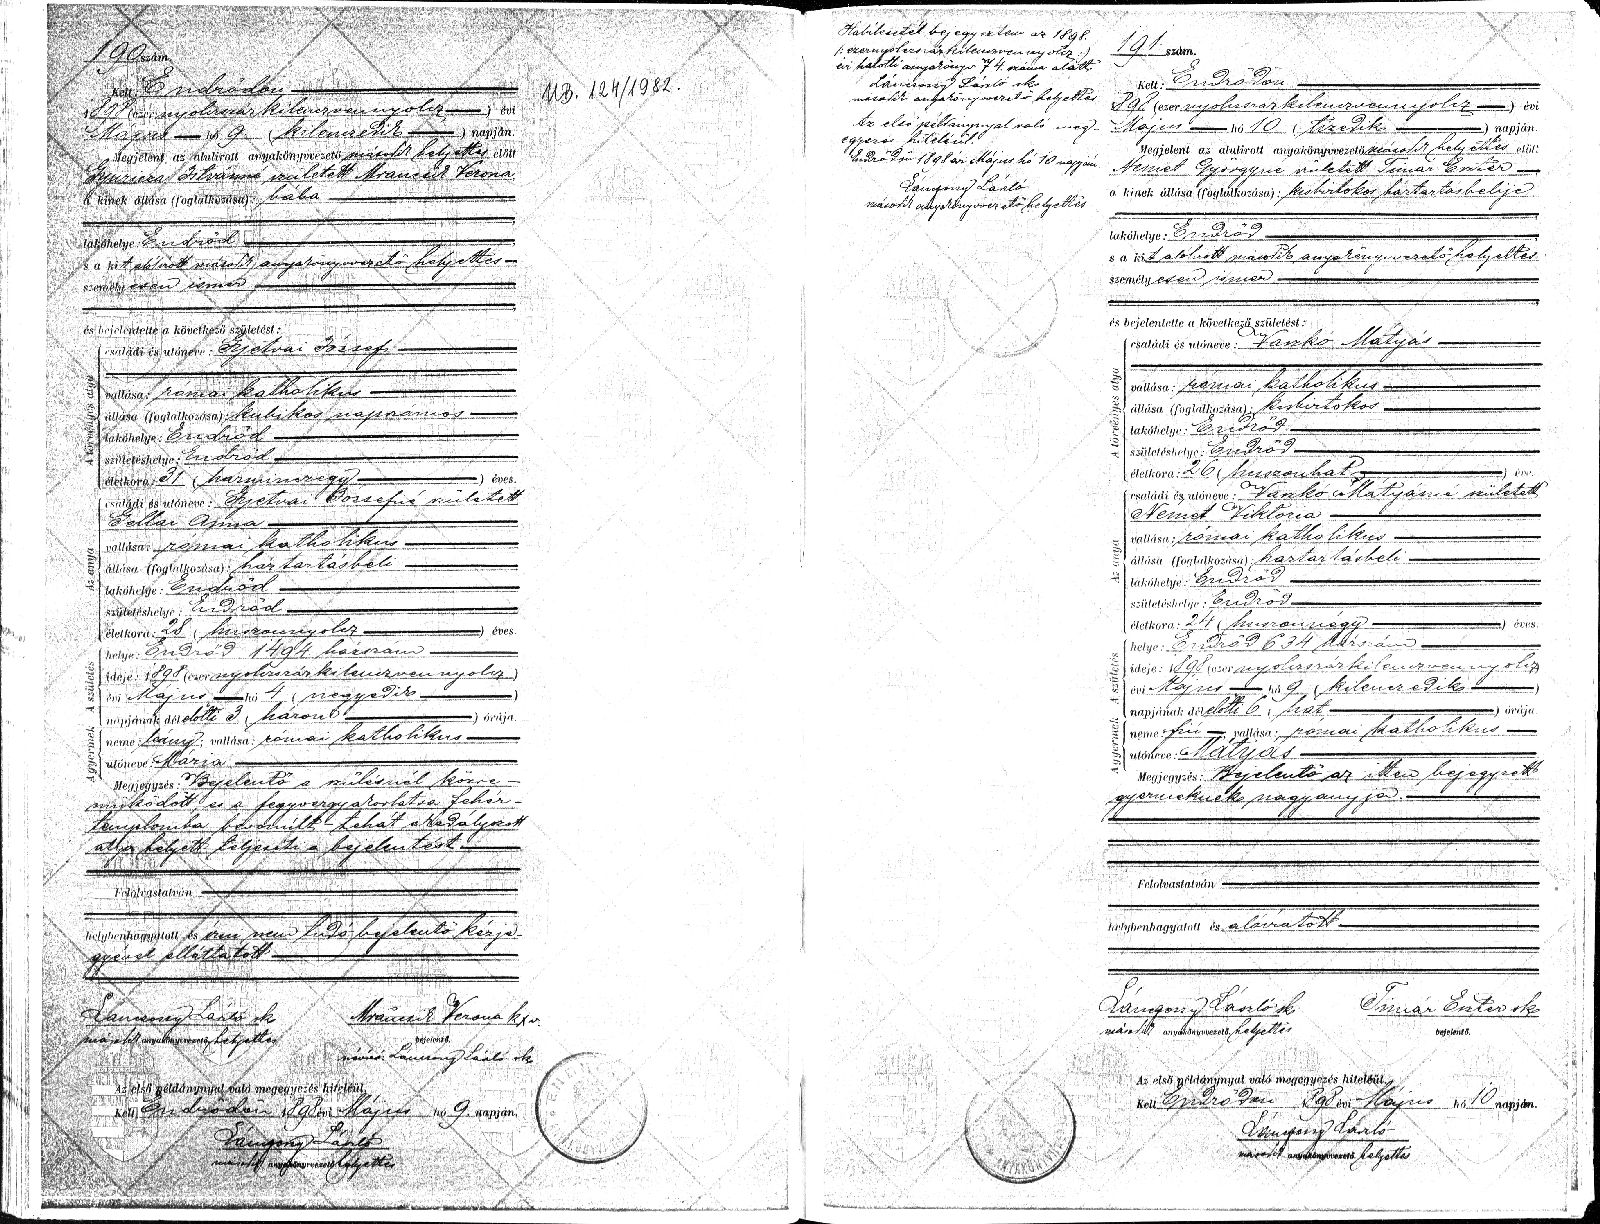 190 szám.
Kelt Endrődön
1898 (ezernyolczszázkilenczvennyolcz) évi
Május hó 9 (kilenczedik) napján.
Megjelent az alulirott anyakönyvezető második helyettes előtt
Istvánné született Mrancsik Verona
a kinek állása (foglalkozása): bába
lakóhelye: Endrőd
s a kit alólirott másodk anyakönyvvezető helyettes
személyesen ismer
és bejelentette a következő születést:
A törvényes atya
családi és utóneve: Gyetvai József
vallása: római katholikus
állása (foglalkozása): kubikos napszámos
lakóhelye: Endrőd
születéshelye: Endrőd
életkora: 31 (harminczegy) éves.
Az anya
családi és utóneve: Gyetvai Józsefné született
Gellai Anna
vallása: római katholikus
állása (foglalkozása): háztartásbeli
lakóhelye: Endrőd
születéshelye: Endrőd
életkora: 28 (huszonnyolcz) éves.
A születés
helye: Endrőd 1494 házszám
ideje: 1898 (ezernyolczszázkilenczvennyolcz)
évi Május hó 4 (negyedik)
napjának délelőtti 3 (három) órája.
A gyermek
neme: leány; vallása: római katholikus
utóneve: Mária
Megjegyzés: Bejelentő a szülésnél közre-
működött, és a fegyvergyakorlatra fehér-
templomba bevonult - tehát akadályozott
atya helyett teljesíti a bejelentést
Felolvastatván
helybenhagyatott és írni nem tudó bejelentő kézje-
gyével elláttatott
Lánczony László sk
másodk anyakönyvvezető helyettes
Mrancsik Verona k x v.
bejelentő.
névíró: Lánczony László sk
Az első példánynyal való megegyezés hiteléül.
Kelt Endrődön 1898 évi Május hó 9. napján.
Lánczony László
másodk anyakönyvvezető helyettes
UB. 124/1982.
Halálesetét bejegyeztem az 1898
(:ezernyolczszázkilenczvennyolcz:)
évi halotti anyakönyv 74. száma alatt.
Lánczony László sk
másodk anyakönyvvezető helyettes
Az első példánynyal való meg-
egyezés hiteléül.
Endrődön 1898 évi Május hó 10 napján
Lánczony László
másodk anyakönyvvezető helyettes
191 szám.
Kelt: Endrődön
1898 (ezernyolczszázkilenczvennyolcz) évi
Május hó 10 (tizedik) napján.
Megjelent az alulirott anyakönyvvezető másodk helyettes előtt
Német Györgyné született Timár Eszter
a kinek állása (foglalkozása): kisbirtokos háztartásbelije
lakóhelye: Endrőd
s a kit alólirott másodk anyakönyvvezető helyettes
személyesen ismer
és bejelentette a következő születést:
A törvényes atya
családi és utóneve: Vankó Mátyás
vallása: római katholikus
állása (foglalkozása): kisbirtokos
lakóhelye: Endrőd
születéshelye: Endrőd
életkora: 26 (huszonhat) éves.
Az anya
családi és utóneve: Vankó Mátyásné született
Német Viktória
vallása: római katholikus
állása (foglalkozása): háztartásbeli
lakóhelye: Endrőd
születéshelye: Endrőd
életkora: 24 (huszonnégy) éves.
A születés
helye: Endrőd 634 házszám
ideje: 1898 (ezernyolczszázkilenczvennyolcz
évi Május hó 9 (kilenczedik)
napjának délelőtti 6 (hat) órája.
A gyermek
neme: fiú; vallása: római katholikus
utóneve: Mátyás
Megjegyzés: Bejelentő az itten bejegyzett
gyermeknek nagyanyja.
Felolvastatván
helybenhagyatott és aláíratott
Lánczony László sk
másodk anyakönyvvezető helyettes
Timár Eszter sk
bejelentő.
Az első példánynyal való megegyezés hiteléül.
Kelt Endrődön 1898 évi Május hó 10 napján.
Lánczony László
másodk anyakönyvvezető helyettes